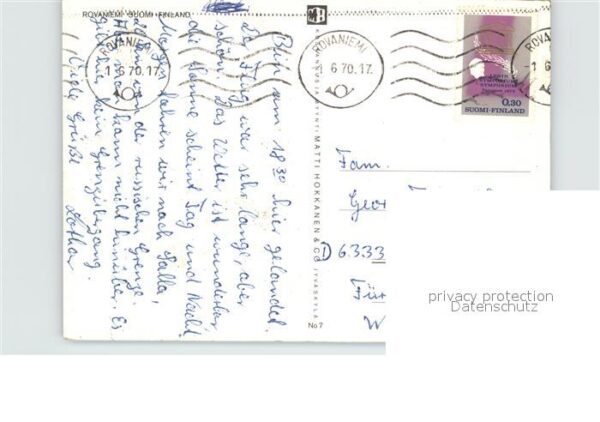 ROVANIEMI SUOMI-FINLAND
Bin um 18³⁰ hier gelandet.
Der Flug war sehr lange, aber
schön. Das Wetter ist wunderbar
die Sonne scheint Tag und Nacht.
Morgen fahren wir nach Salla,
der russischen Grenze.
man kann nicht hinüber. Es
gibt kein Grenzübergang.
Viele Grüße
Lothar
MATTI HOKKANEN & CO JYVÄSKYLÄ
No 7
ROVANIEMI
-1.6.70.17
ROVANIEMI
1.6.70.17
ROVANIEMI
-1.6
SYMPOSIUM
0,30
SUOMI-FINLAND
Fam.
Geor
D 6333
privacy protection
Datenschutz